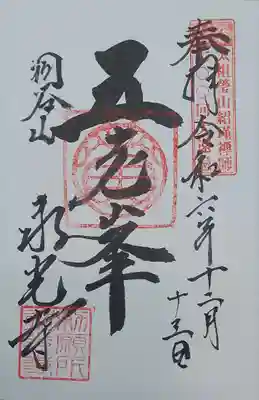 奉拝 令和六年十二月
十三日
五老峯
洞谷山
永光寺